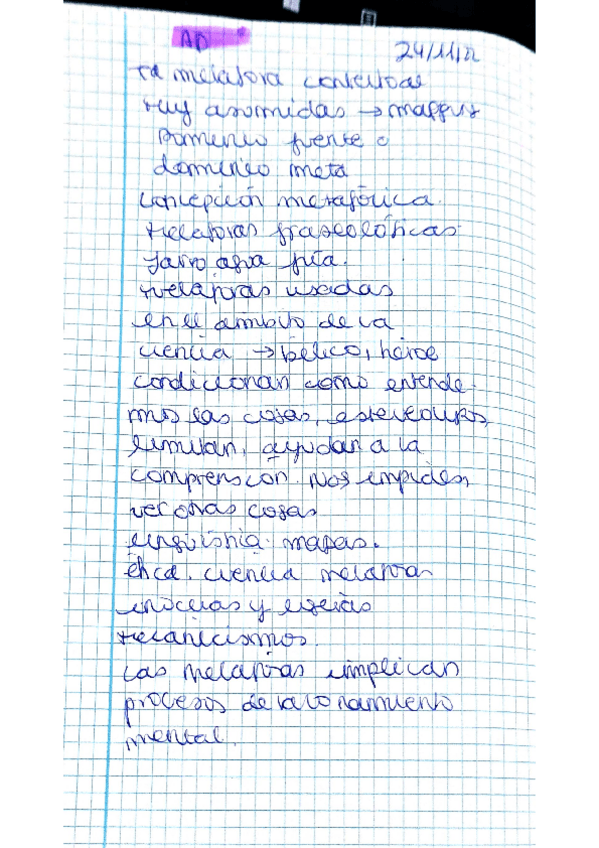 AD
24/11/22
metáfora
muy asumidas → mapping
Dominio fuente o
dominio meta
Concepción metafórica.
Metáforas fraseológicas.
Jarro agua fría.
Metáforas usadas
en el ámbito de la
ciencia → bélico, héroe
condicionan como entende-
mos las cosas, estereotipos,
limitan, ayudan a la
comprensión. Nos impiden
ver otras cosas
mapas.
Ética. ciencia metáforas
inocuas y
Mecanicismos.
Las metáforas implican
procesos de razonamiento
mental.